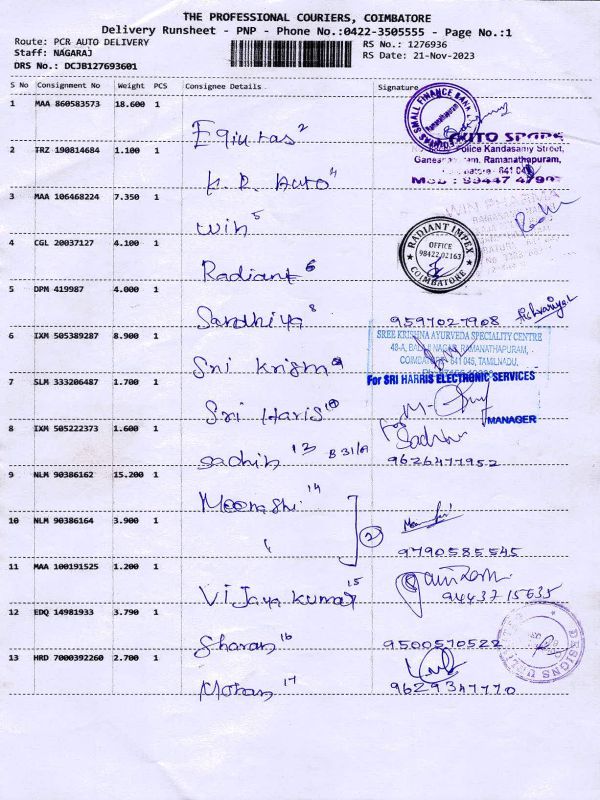 THE PROFESSIONAL COURIERS, COIMBATORE
Delivery Runsheet - PNP - Phone No.:0422-3505555 - Page No.:1
Route: PCR AUTO DELIVERY
RS No.: 1276936
Staff: NAGARAJ
RS Date: 21-Nov-2023
DRS No.: DCJB127693601
S No Consignment No Weight PCS Consignee Details Signature
1 MAA 860583573 18.600 1
Equitas 2
SMALL FINANCE BANK
2 TRZ 190814684 1.100 1
K. R. Auto 4
AUTO SPARE
Police Kandasamy Street,
Ramanathapuram,
641 045
3 MAA 106468224 7.350 1
Win 5
4 CGL 20037127 4.100 1
Radiant 6
RADIANT IMPEX
OFFICE
98422 02163
COIMBATORE
5 DPM 419987 4.000 1
Sandhiya 8
9597027908
6 IXM 505389287 8.900 1
Sri Krishna 9
SREE KRISHNA AYURVEDA SPECIALITY CENTRE
48-A, BALAJI NAGAR, RAMANATHAPURAM,
COIMBATORE - 641 045, TAMILNADU.
7 SLM 333206487 1.700 1
Sri Haris 10
For SRI HARRIS ELECTRONIC SERVICES
MANAGER
8 IXM 505222373 1.600 1
Sadhib 13 B 31/A
9626477952
9 NLM 90386162 15.200 1
Meenashi 14
10 NLM 90386164 3.900 1
2
9790585545
11 MAA 100191525 1.200 1
Vijaya Kumar 15
9443715635
12 EDQ 14981933 3.790 1
Sharan 16
9500570522
DESIGNS UNLIMITED
13 HRD 7000392260 2.700 1
Mohan 17
9629347770